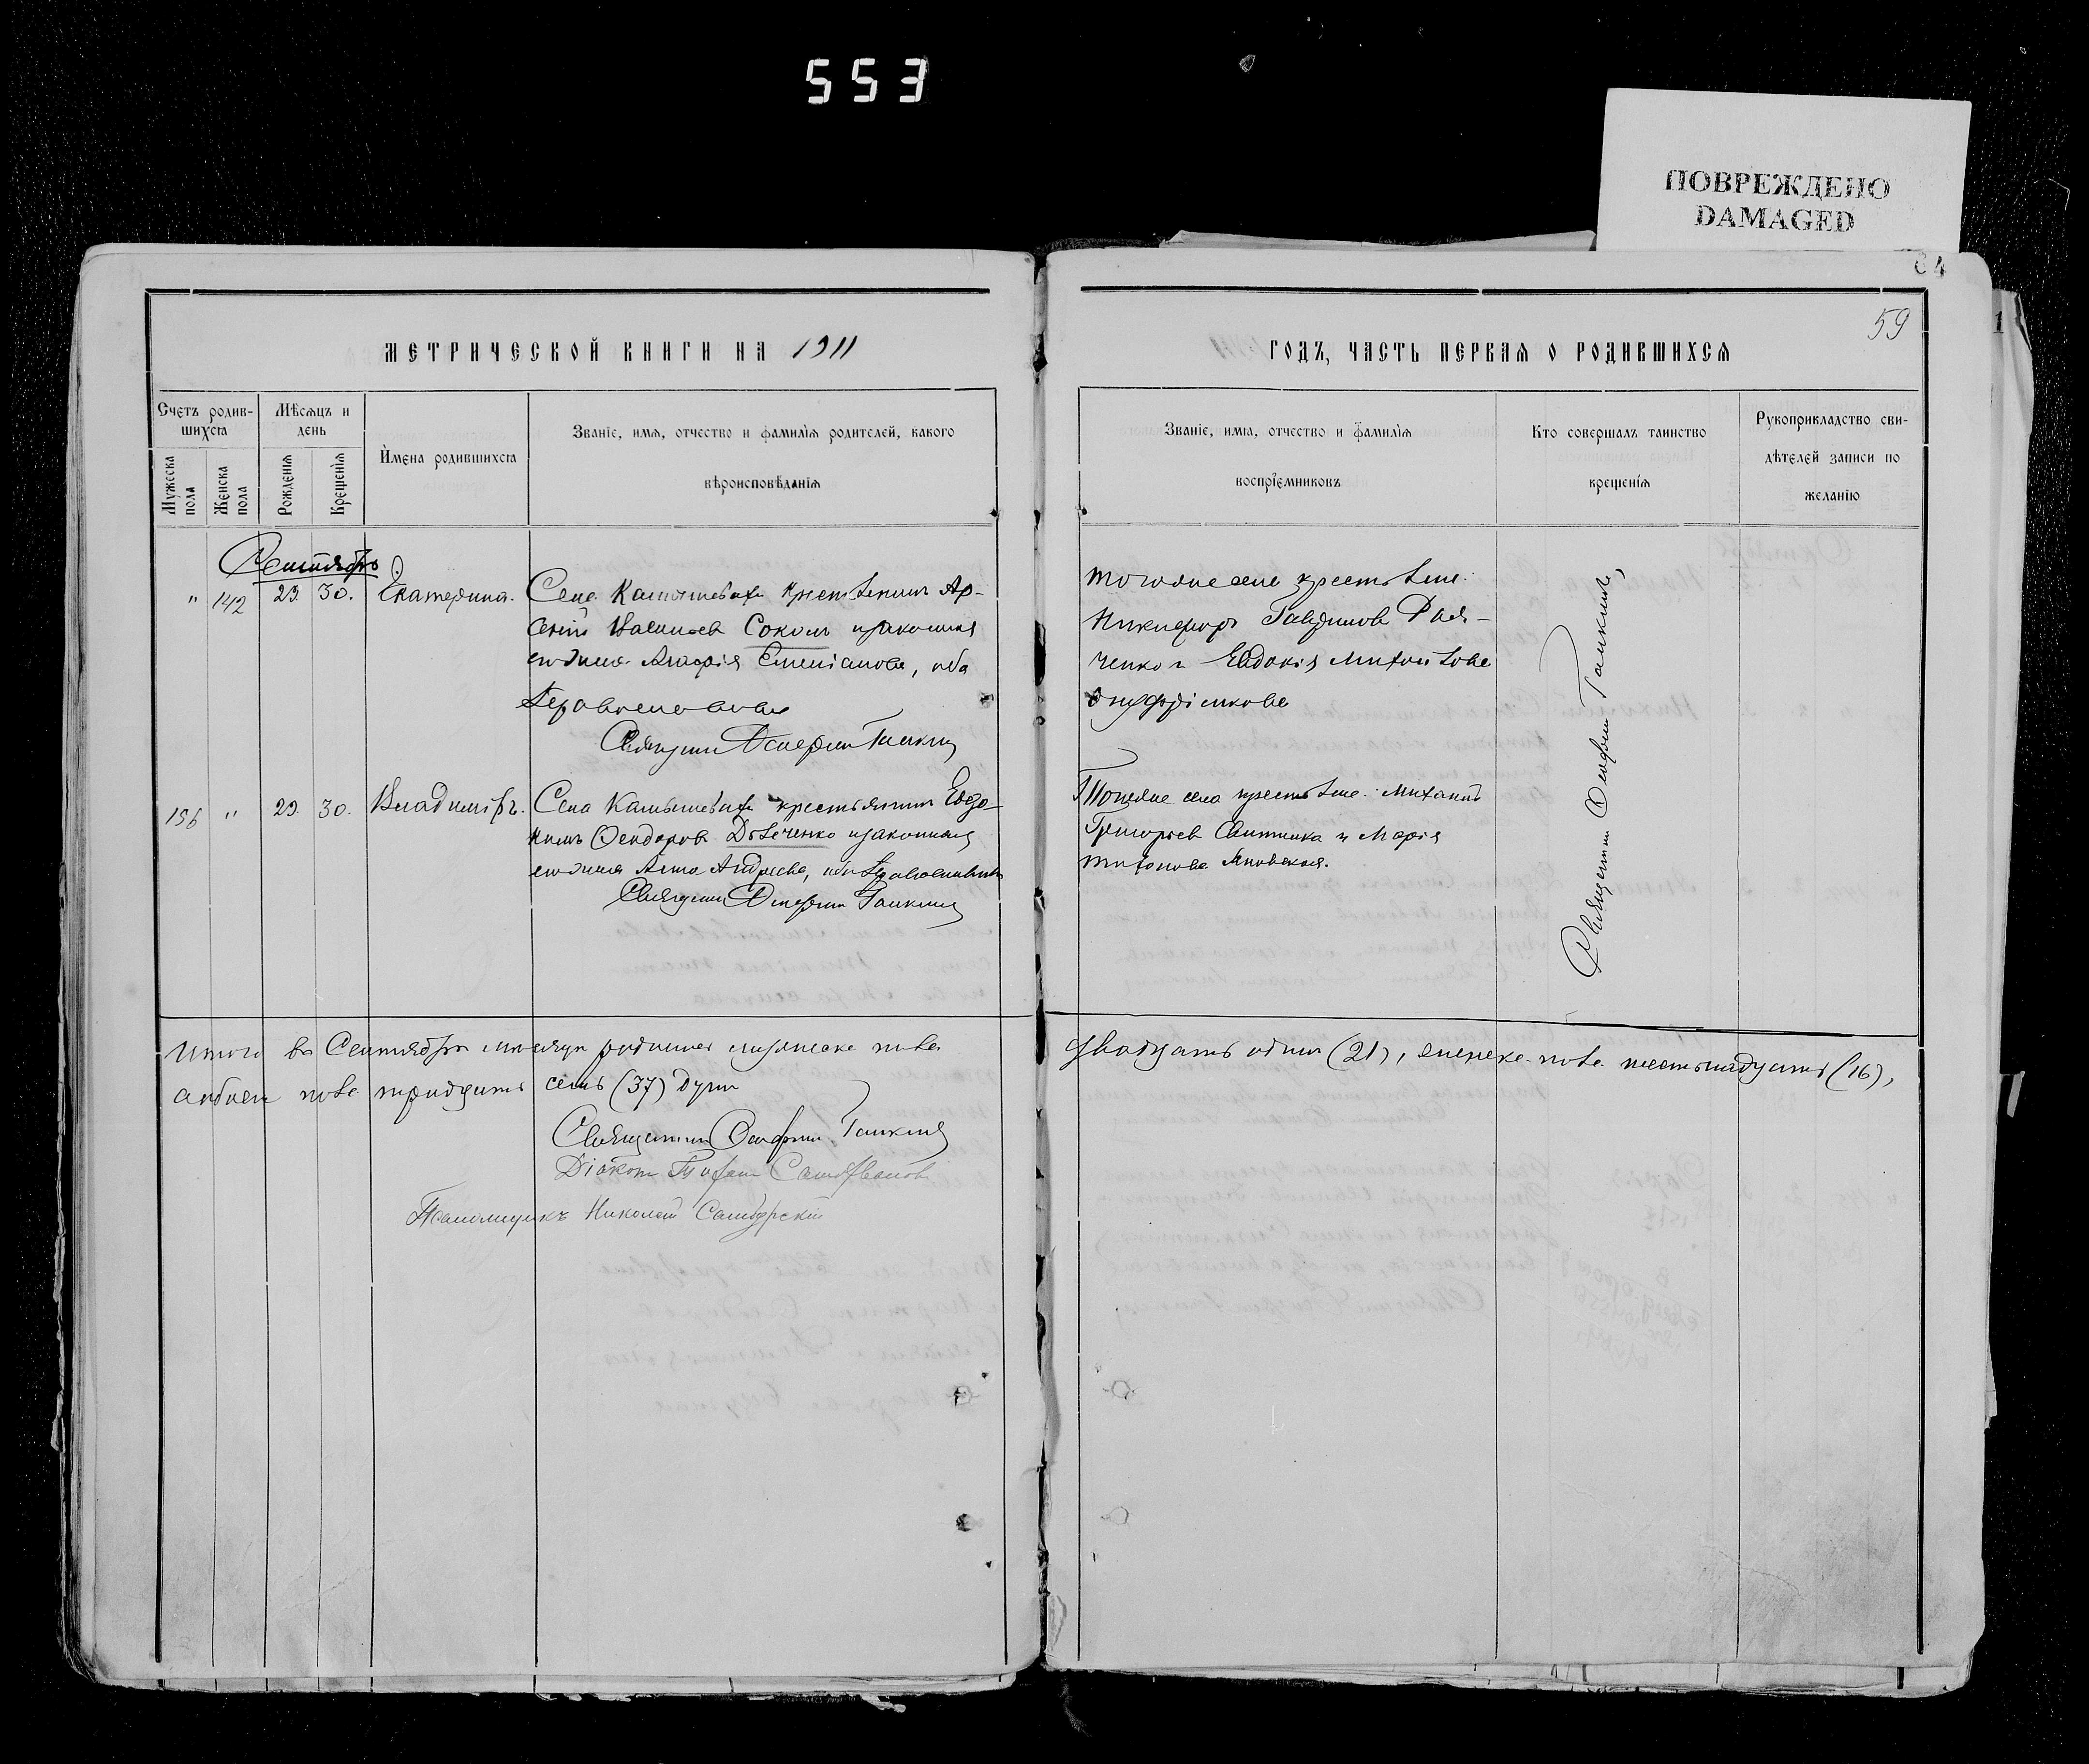 553
ПОВРЕЖДЕНО
DAMAGED
64
59
МЕТРИЧЕСКОЙ КНИГИ НА 1911
ГОДЪ, ЧАСТЬ ПЕРВАЯ О РОДИВШИХСЯ
Счетъ родив-
шихся
Мужеска пола
Женска пола
Мѣсяцъ и
день
Рожденія
Крещенія
Имена родившихся
Званіе, имя, отчество и фамилія родителей, какого
вѣроисповѣданія
Званіе, имя, отчество и фамилія
воспріемниковъ
Кто совершалъ таинство
крещенія
Рукоприкладство сви-
дѣтелей записи по
желанію
Сентябрь
" 142 29. 30. Екатерина.
Села Камышевахи крестьянинъ Ар-
сеній Соколъ и законная
его жена Марія Стефанова, оба
православные
Священникъ
тогоже села крестьян.
Никифоръ Гавриловъ
ченко и Евдокія
156 " 29. 30. Владиміръ.
Села Камышевахи крестьянинъ Евдо-
кимъ Феодоровъ и законная
его жена Анна Андреева, оба православные
Священникъ
Тогоже села крестьян. Михаилъ
Григорьевъ и Марія
Священникъ
Итого въ Сентябрѣ мѣсяцѣ родилось мужеска пола
двадцать одинъ (21), женска пола шестнадцать (16),
а обоего пола тридцать семь (37) душъ
Священникъ
Діаконъ
Псаломщикъ Николай Самборскій